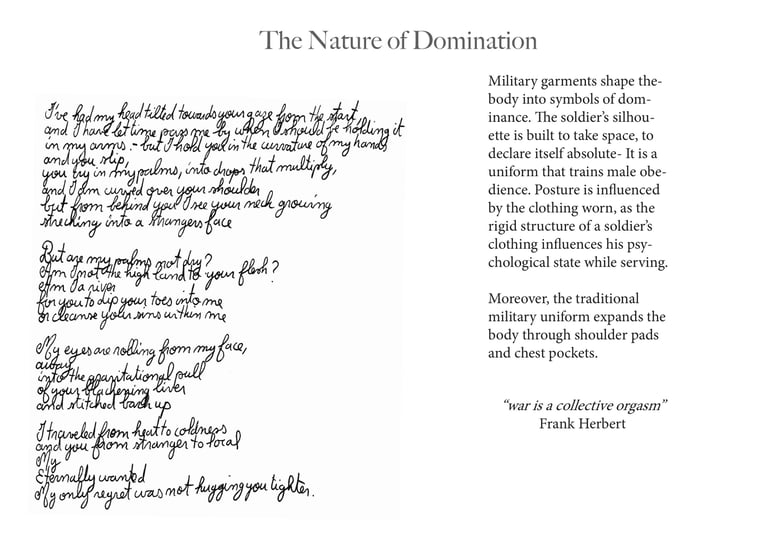 The Nature of Domination
I've had my head tilted towards your gaze from the start,
and I have let time pass me by when I should be holding it
in my arms. - but I hold you in the curvature of my hands
and you slip,
you cry in my palms, into drops that multiply,
and I am curved over your shoulder
but from behind you I see your neck growing
streching into a strangers face
But are my palms not dry?
Am I not the high land to your flesh?
Am I a river
for you to dip your toes into me
or cleanse your sins within me
My eyes are rolling from my face,
away
into the gravitational pull
of your blackening liver
and stitched back up
I traveled from heat to coldness
and you from stranger to local
My
Eternally wanted
My only regret was not hugging you tighter.
Military garments shape the-
body into symbols of dom-
inance. The soldier's silhou-
ette is built to take space, to
declare itself absolute- It is a
uniform that trains male obe-
dience. Posture is influenced
by the clothing worn, as the
rigid structure of a soldier's
clothing influences his psy-
chological state while serving.
Moreover, the traditional
military uniform expands the
body through shoulder pads
and chest pockets.
"war is a collective orgasm"
Frank Herbert